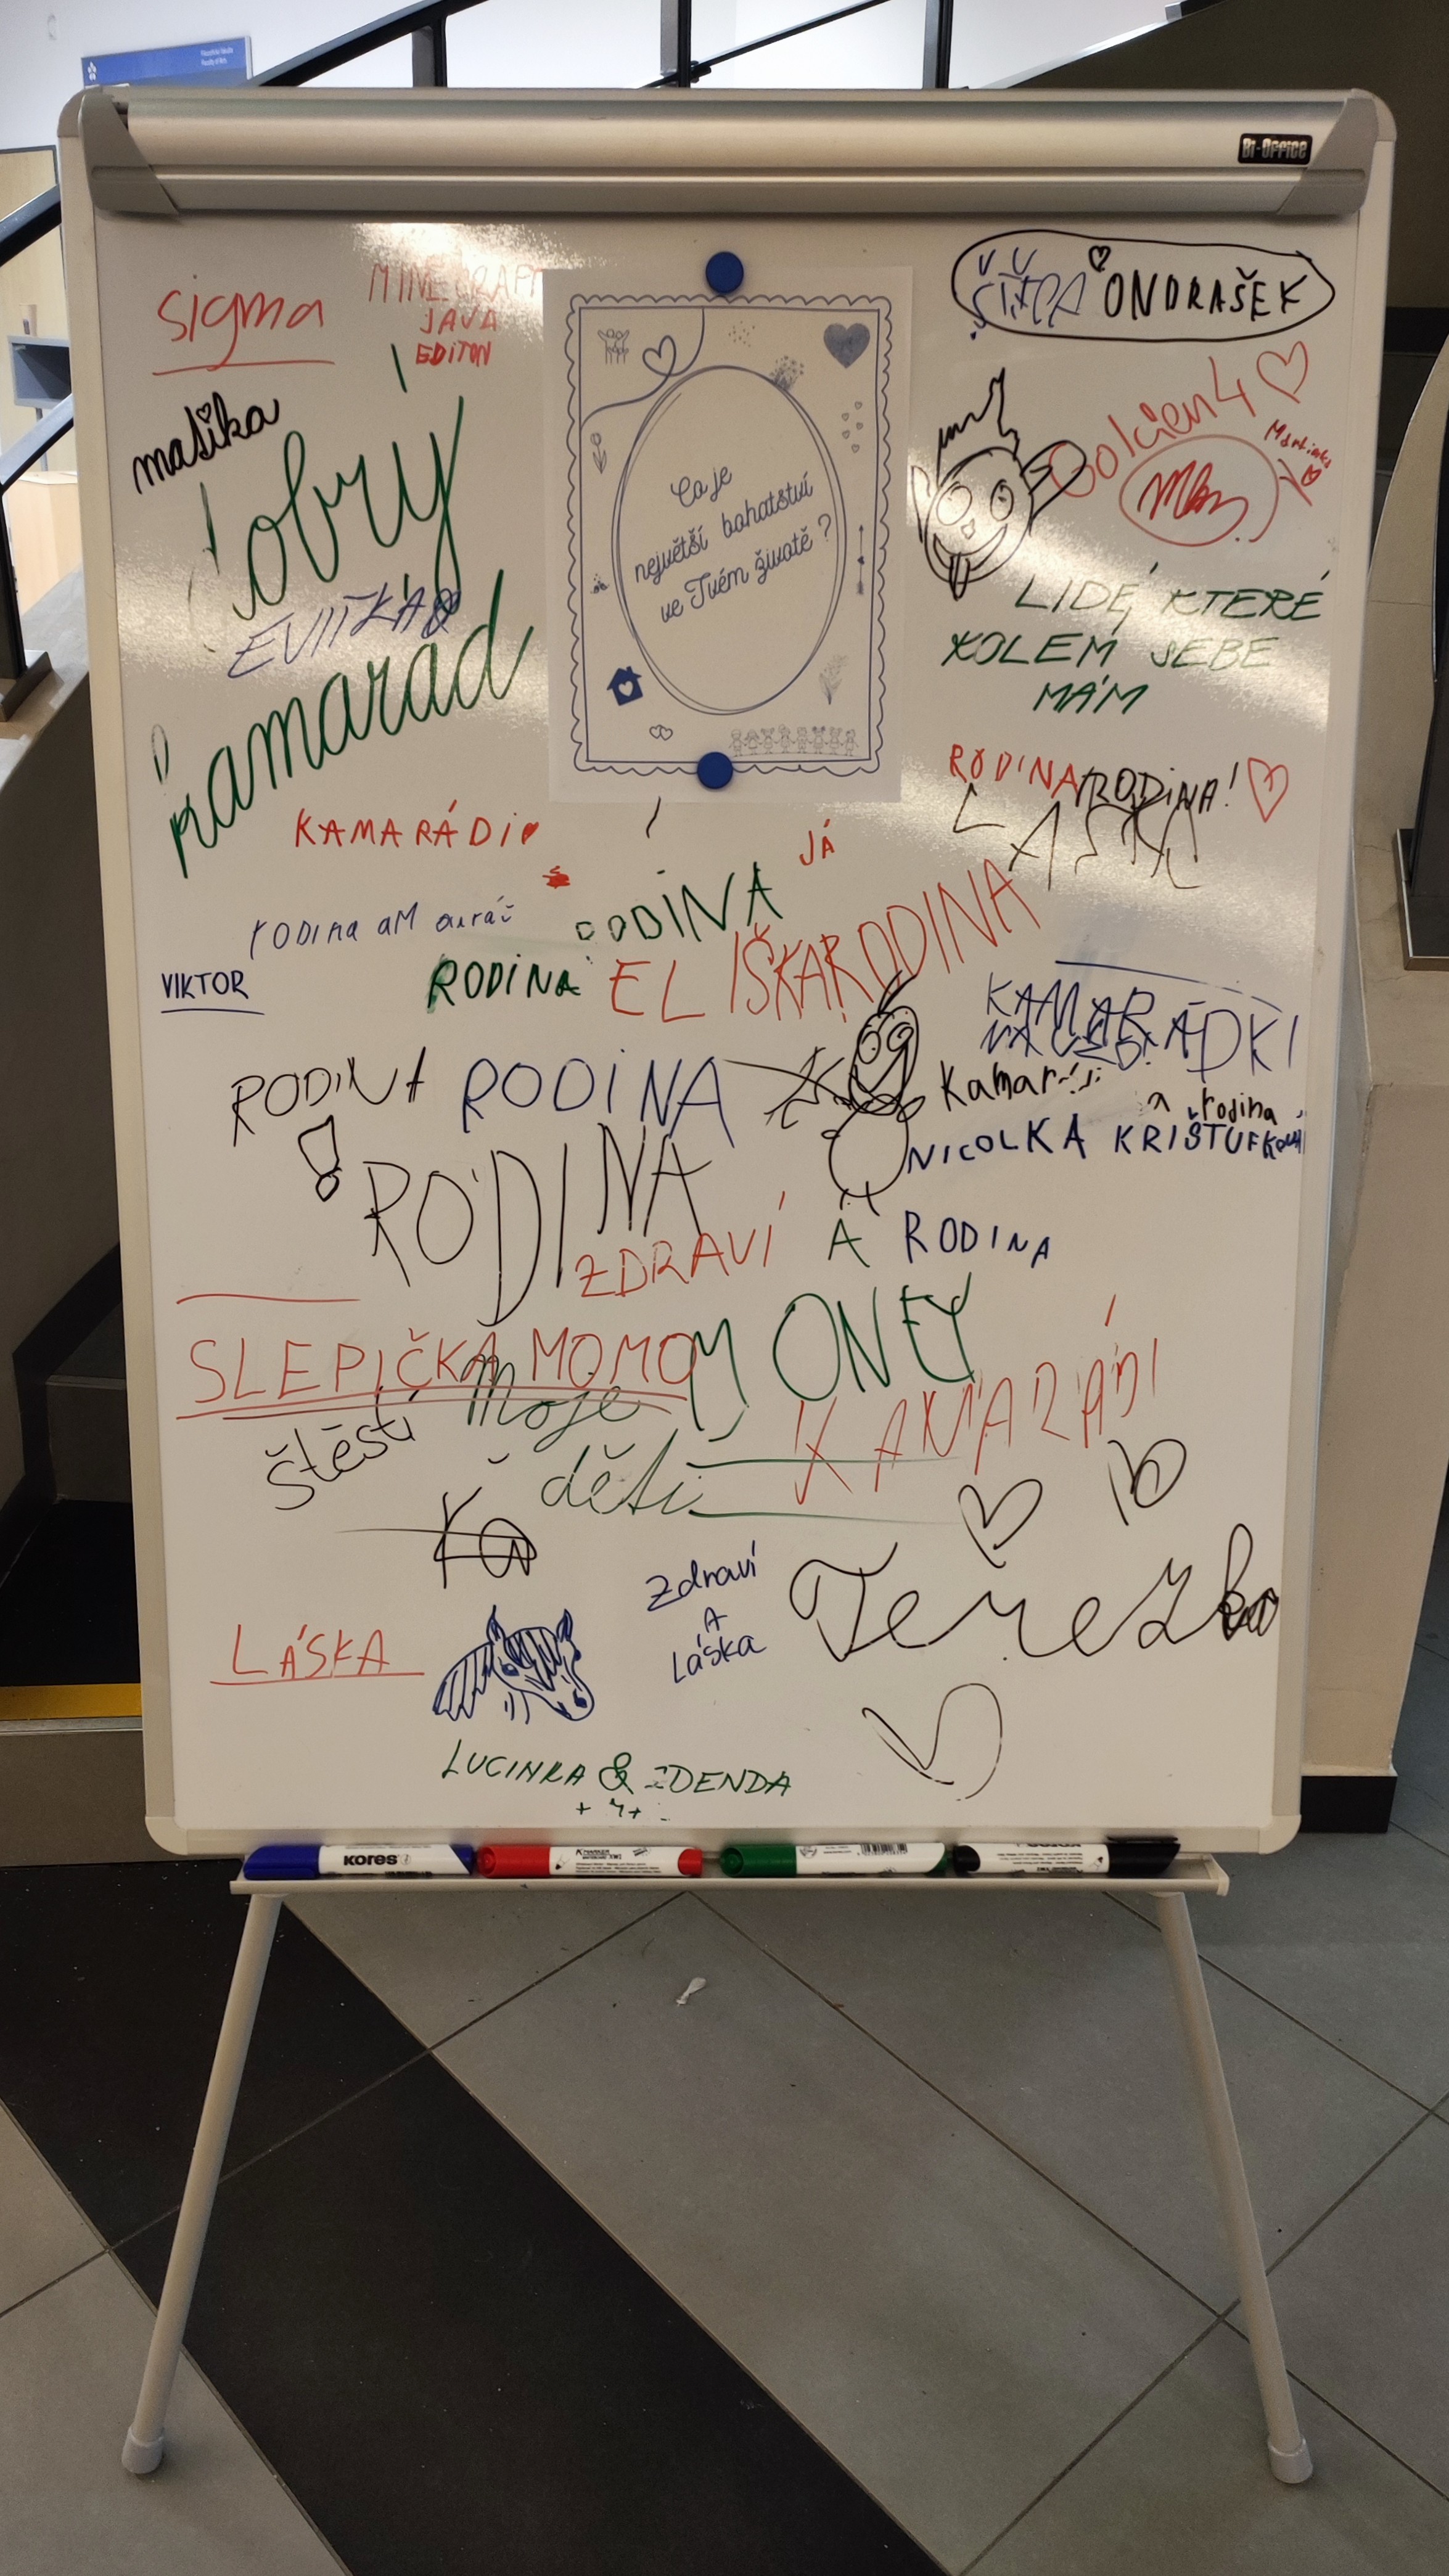 Filozofická fakulta
Faculty of Arts
Bi-Office
sigma
MINECRAFT
JAVA
EDITON
ONDRAŠEK
mašika
dobrý
kamarád
Co je
největší bohatství
ve Tvém životě?
Golcien4
Martinka
LIDÉ, KTERÉ
KOLEM SEBE
MÁM
RODINA
RODINA!
LÁSKA
KAMARÁDI
JÁ
RODINA
RODINA
ELIŠKA
RODINA
rodina
VIKTOR
KAMARÁDKI
a rodina
NICOLKA
RODINA
RODINA
RODINA
ZDRAVÍ A RODINA
SLEPIČKA MOMO
MONEY
moje
děti
štěstí
KAMARÁDI
Zdraví
A
Láska
Terezka
LÁSKA
LUCINKA & ZDENDA
KORES